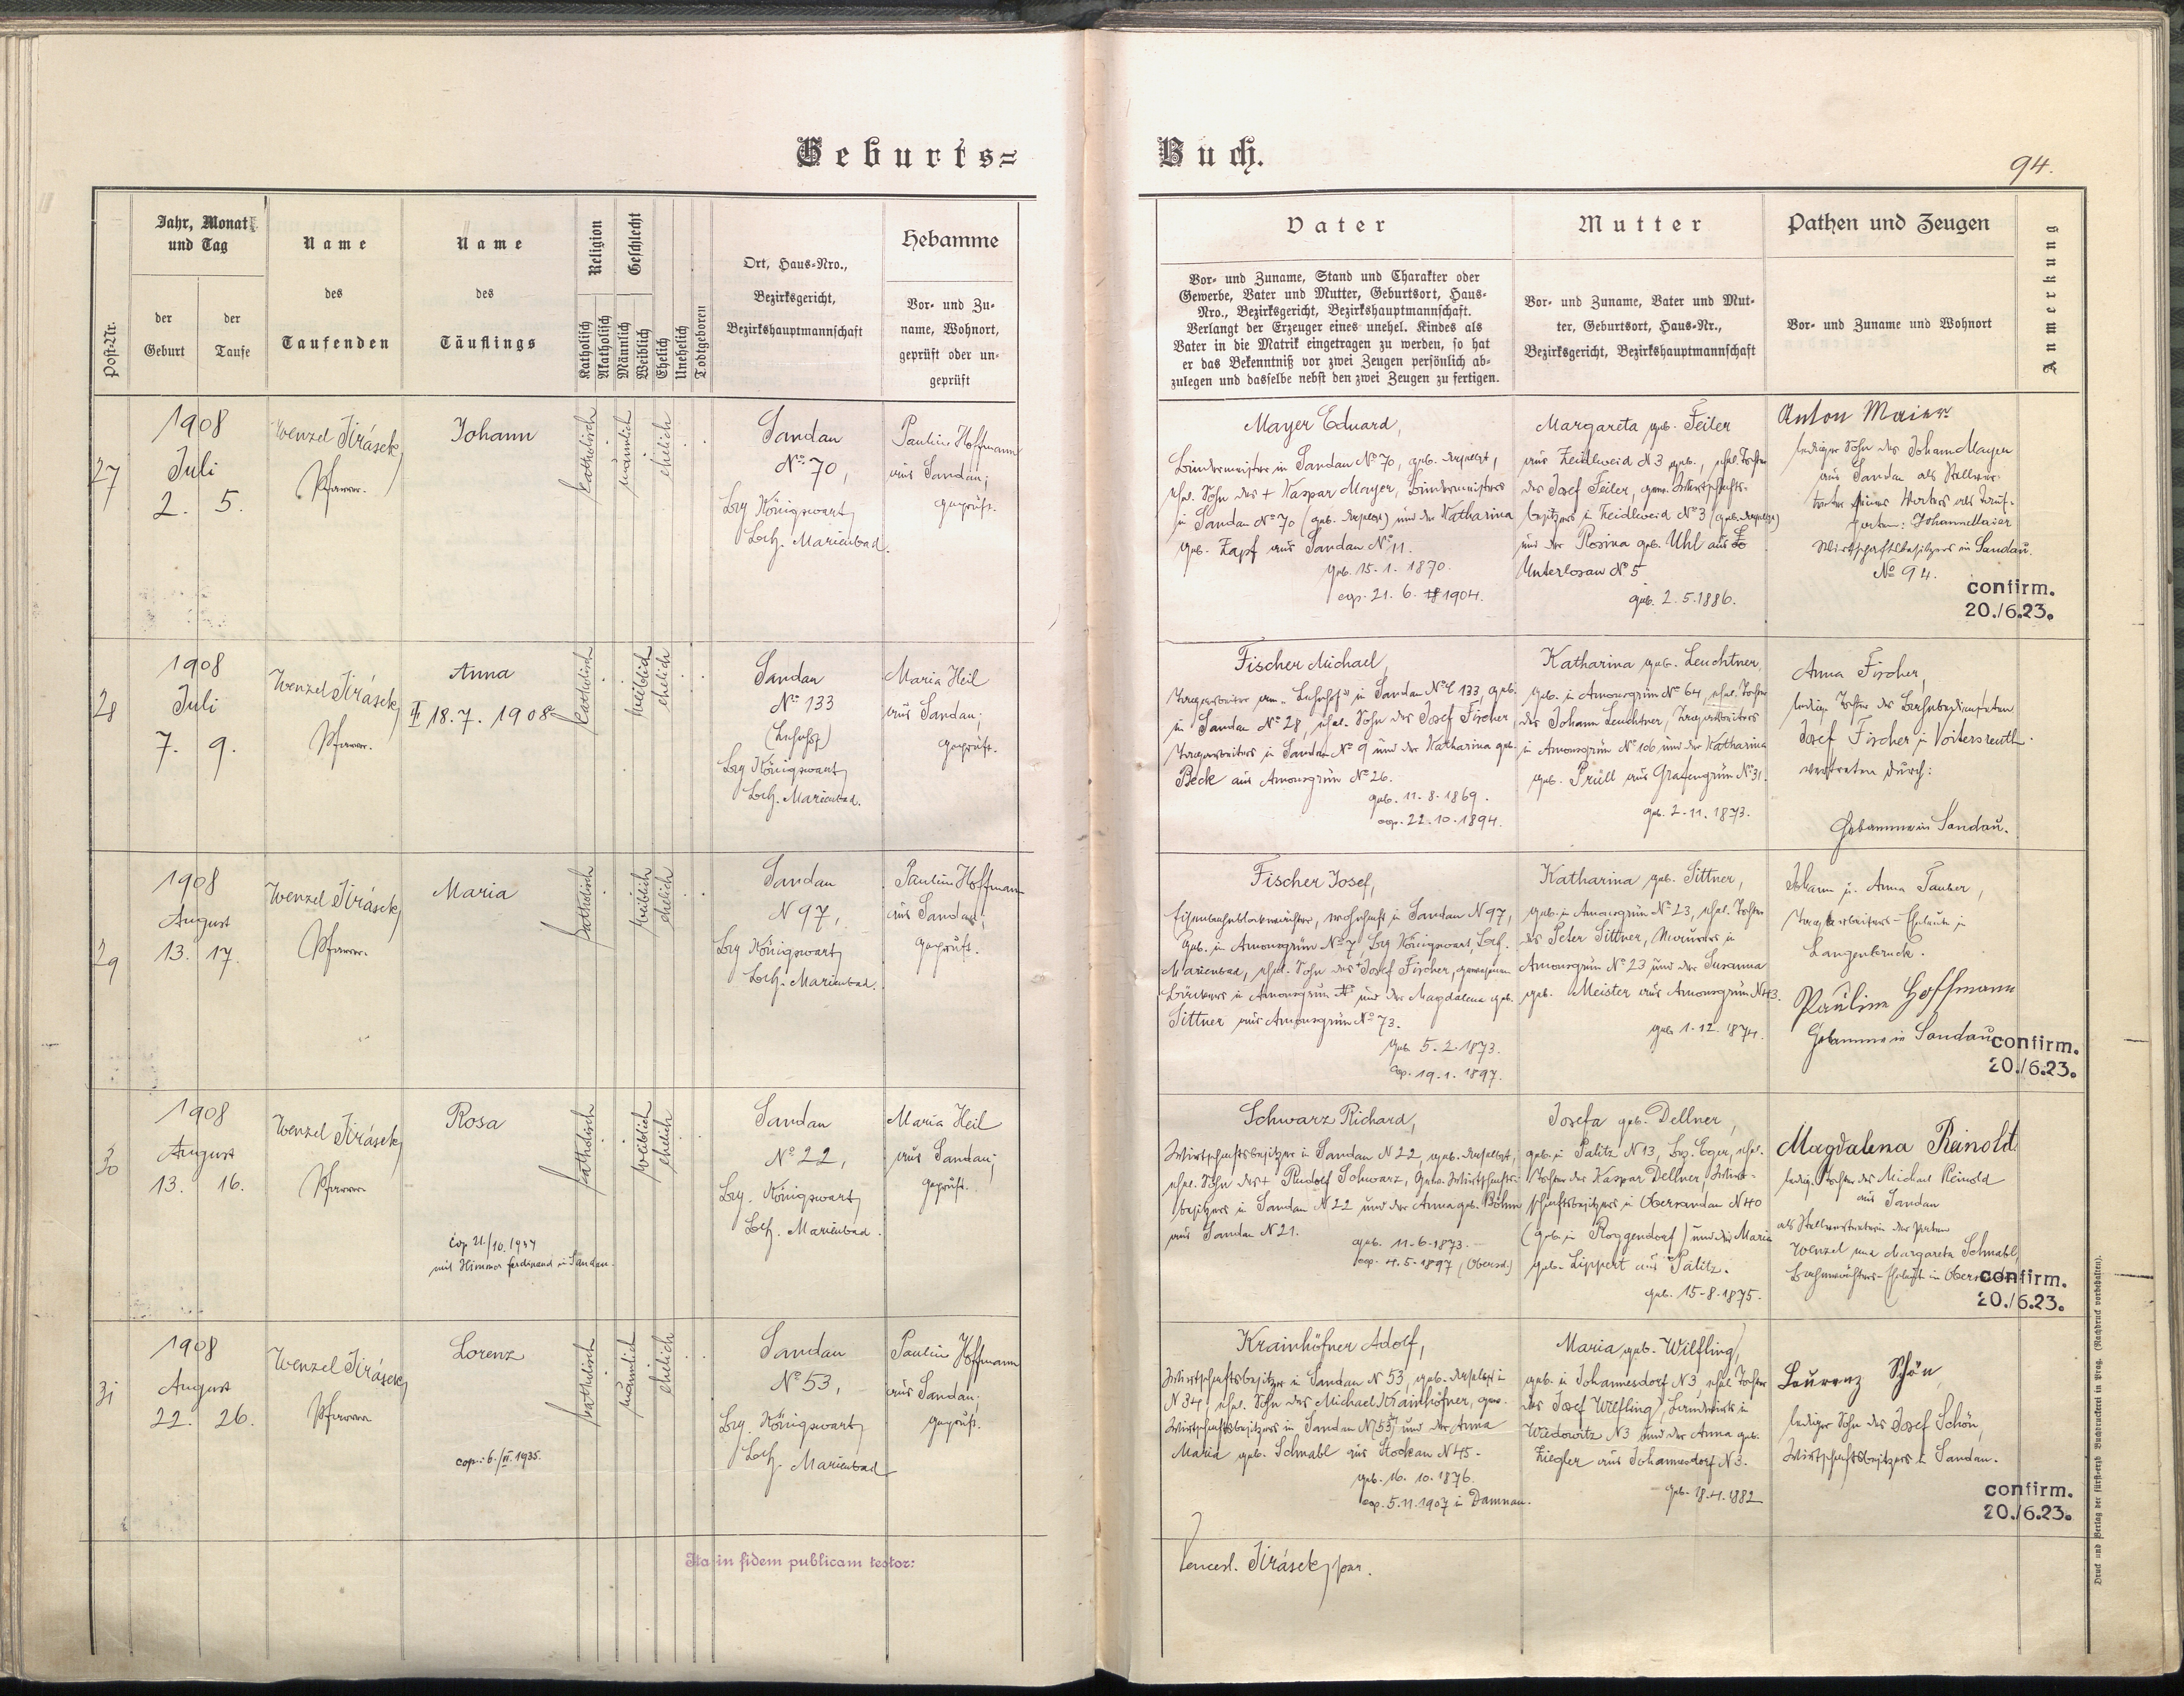 Geburts=
Buch.
94.
Post-Nr.
Jahr, Monat
und Tag
der
Geburt
der
Taufe
Name
des
Taufenden
Name
des
Täuflings
Religion
Katholisch
Akatholisch
Geschlecht
Männlich
Weiblich
Ehelich
Unehelich
Todtgeboren
Ort, Haus-Nro.,
Bezirksgericht,
Bezirkshauptmannschaft
Hebamme
Vor- und Zu-
name, Wohnort,
geprüft oder un-
geprüft
Vater
Vor- und Zuname, Stand und Charakter oder
Gewerbe, Vater und Mutter, Geburtsort, Haus-
Nro., Bezirksgericht, Bezirkshauptmannschaft.
Verlangt der Erzeuger eines unehel. Kindes als
Vater in die Matrik eingetragen zu werden, so hat
er das Bekenntniß vor zwei Zeugen persönlich ab-
zulegen und dasselbe nebst den zwei Zeugen zu fertigen.
Mutter
Vor- und Zuname, Vater und Mut-
ter, Geburtsort, Haus-Nr.,
Bezirksgericht, Bezirkshauptmannschaft
Pathen und Zeugen
Vor- und Zuname und Wohnort
Anmerkung
27
1908
Juli
2. 5.
Wenzel Jirásek,
Pfarrer.
Johann
katholisch
männlich
ehelich
Sandau
No. 70,
Bzg Königswart,
Bzh. Marienbad.
Pauline Hoffmann
aus Sandau;
geprüft.
Mayer Eduard,
Bindermeister in Sandau No 70, geb. daselbst,
ehel. Sohn des + Kaspar Mayer, Bindermeisters
in Sandau No 70 (geb. daselbst) und der Katharina
geb. Zapf aus Sandau No 11.
geb. 15.1.1870.
cop. 21.6.1904.
Margareta geb. Feiler
aus Zeidlweid N3 geb., ehel. Tochter
des Josef Feiler, gew. Wirtschafts-
besitzers in Zeidlweid No 3 (geb. daselbst)
und der Rosina geb. Uhl aus
Unterlosau No 5
geb. 2.5.1886.
Anton Maier
lediger Sohn des Johann Mayer
aus Sandau als Stellver-
treter seines Vaters als Tauf-
paten: Johann Maier
Wirtschaftsbesitzers in Sandau.
No 94.
confirm.
20./6.23.
28
1908
Juli
7. 9.
Wenzel Jirásek,
Pfarrer.
Anna
18.7.1908
katholisch
weiblich
ehelich
Sandau
No 133
(Lehnhof)
Bzg Königswart,
Bzh. Marienbad.
Maria Heil
aus Sandau;
geprüft.
Fischer Michael,
Tagarbeiter am "Lehnhof" in Sandau No 133, geb.
in Sandau No 28, ehel. Sohn des Josef Fischer,
Tagarbeiters in Sandau No 9 und der Katharina geb.
Beck aus Amonsgrün No 26.
geb. 11.8.1869.
cop. 22.10.1894.
Katharina geb. Leuchtner,
geb. in Amonsgrün No 64, ehel. Tochter
des Johann Leuchtner, Tagarbeiters
in Amonsgrün No 106 und der Katharina
geb. Prüll aus Grafengrün No 31.
geb. 2.11.1873.
Anna Fischer,
ledige Tochter des Bahnbediensteten
Josef Fischer in Voitersreuth.
vertreten durch:
Hebamme in Sandau.
29
1908
August
13. 17.
Wenzel Jirásek,
Pfarrer.
Maria
katholisch
weiblich
ehelich
Sandau
N 97,
Bzg Königswart,
Bzh. Marienbad.
Pauline Hoffmann
aus Sandau;
geprüft.
Fischer Josef,
Eisenbahnblockwächter, wohnhaft in Sandau N 97,
geb. in Amonsgrün No 7 Bzg Königswart, Bzh.
Marienbad, ehel. Sohn des + Josef Fischer, gewesenen
Bäckers in Amonsgrün und der Magdalena geb.
Sittner aus Amonsgrün No 73.
geb. 5.2.1873.
cop. 19.1.1897.
Katharina geb. Sittner,
geb. in Amonsgrün No 23, ehel. Tochter
des Peter Sittner, Maurers in
Amonsgrün No 23 und der Susanna
geb. Meister aus Amonsgrün N43.
geb. 1.12.1874.
Johann u. Anna Tauber,
Tagarbeiters-Eheleute in
Langenbruck.
Pauline Hoffmann
Hebamme in Sandau
confirm.
20./6.23.
30
1908
August
13. 16.
Wenzel Jirásek,
Pfarrer
Rosa
cop. 21./10.1934
mit Himmer Ferdinand in Sandau.
katholisch
weiblich
ehelich
Sandau
No 22,
Bzg. Königswart,
Bzh. Marienbad.
Maria Heil
aus Sandau;
geprüft.
Schwarz Richard,
Wirtschaftsbesitzer in Sandau N 22, geb. daselbst,
ehel. Sohn des + Rudolf Schwarz, gew. Wirtschafts-
besitzers in Sandau N 22 und der Anna geb. Böhm
aus Sandau N 21.
geb. 11.6.1873.
cop. 4.5.1897 (Obersd.)
Josefa geb. Dellner,
geb. in Palitz N 13, Bz. Eger, ehel.
Tochter des Kaspar Dellner, Wirt-
schaftsbesitzers in Obersandau N 40
(geb. in Roggendorf) und der Maria
geb. Lippert aus Palitz.
geb. 15.8.1875.
Magdalena Reinold
ledige Tochter des Michael Reinold
aus Sandau
als Stellvertreterin der Paten
Wenzel und Margareta Schnabl,
Bahnwächters-Eheleute in
confirm.
20./6.23.
31
1908
August
22. 26.
Wenzel Jirásek,
Pfarrer
Lorenz
cop.: 6./II.1935.
katholisch
männlich
ehelich
Sandau
No 53,
Bzg. Königswart,
Bzh. Marienbad
Pauline Hoffmann
aus Sandau;
geprüft.
Krainhöfner Adolf,
Wirtschaftsbesitzer in Sandau N 53, geb. daselbst in
N 34, ehel. Sohn des Michael Krainhöfner, gew.
Wirtschaftsbesitzers in Sandau N 53 und der Anna
Maria geb. Schnabl aus Stockau N 45.
geb. 16.10.1876.
cop. 5.11.1907 in Damnau.
Maria geb. Wilfling,
geb. in Johannesdorf N 3, ehel. Tochter
des Josef Wilfling, Landwirts in
Wadowitz N 3 und der Anna geb.
Ziegler aus Johannesdorf N 3.
geb. 18.4.1882
Laurenz Schön,
lediger Sohn des Josef Schön,
Wirtschaftsbesitzers in Sandau.
confirm.
20./6.23.
Ita in fidem publicam testor:
Vencesl. Jirásek, par.
Druck und Verlag der fürst-erzb Buchdruckerei in Prag. (Nachdruck vorbehalten).